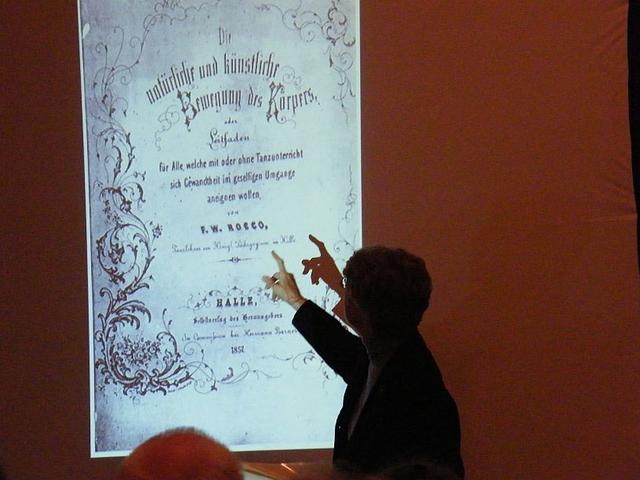 Die
natürliche und künstliche
Bewegung des Körpers,
oder
Leitfaden
für Alle, welche mit oder ohne Tanzunterricht
sich Gewandtheit im geselligen Umgange
aneignen wollen,
von
F. W. ROCCO,
Tanzlehrer am Königl. Pädagogium in Halle
HALLE,
Selbstverlag des Herausgebers
In Commission bei Hermann
1857.